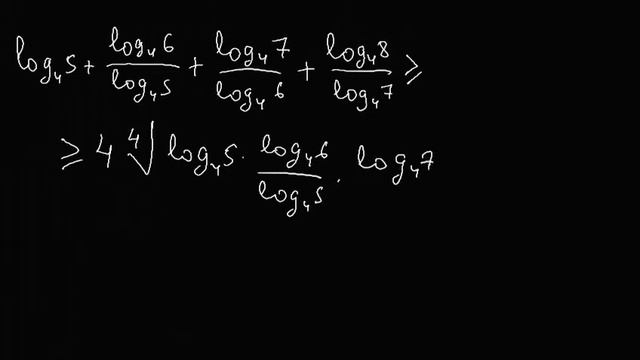 log₄5 + log₄6/log₄5 + log₄7/log₄6 + log₄8/log₄7 ≥
≥ 4 ∜ log₄5 · log₄6/log₄5 · log₄7